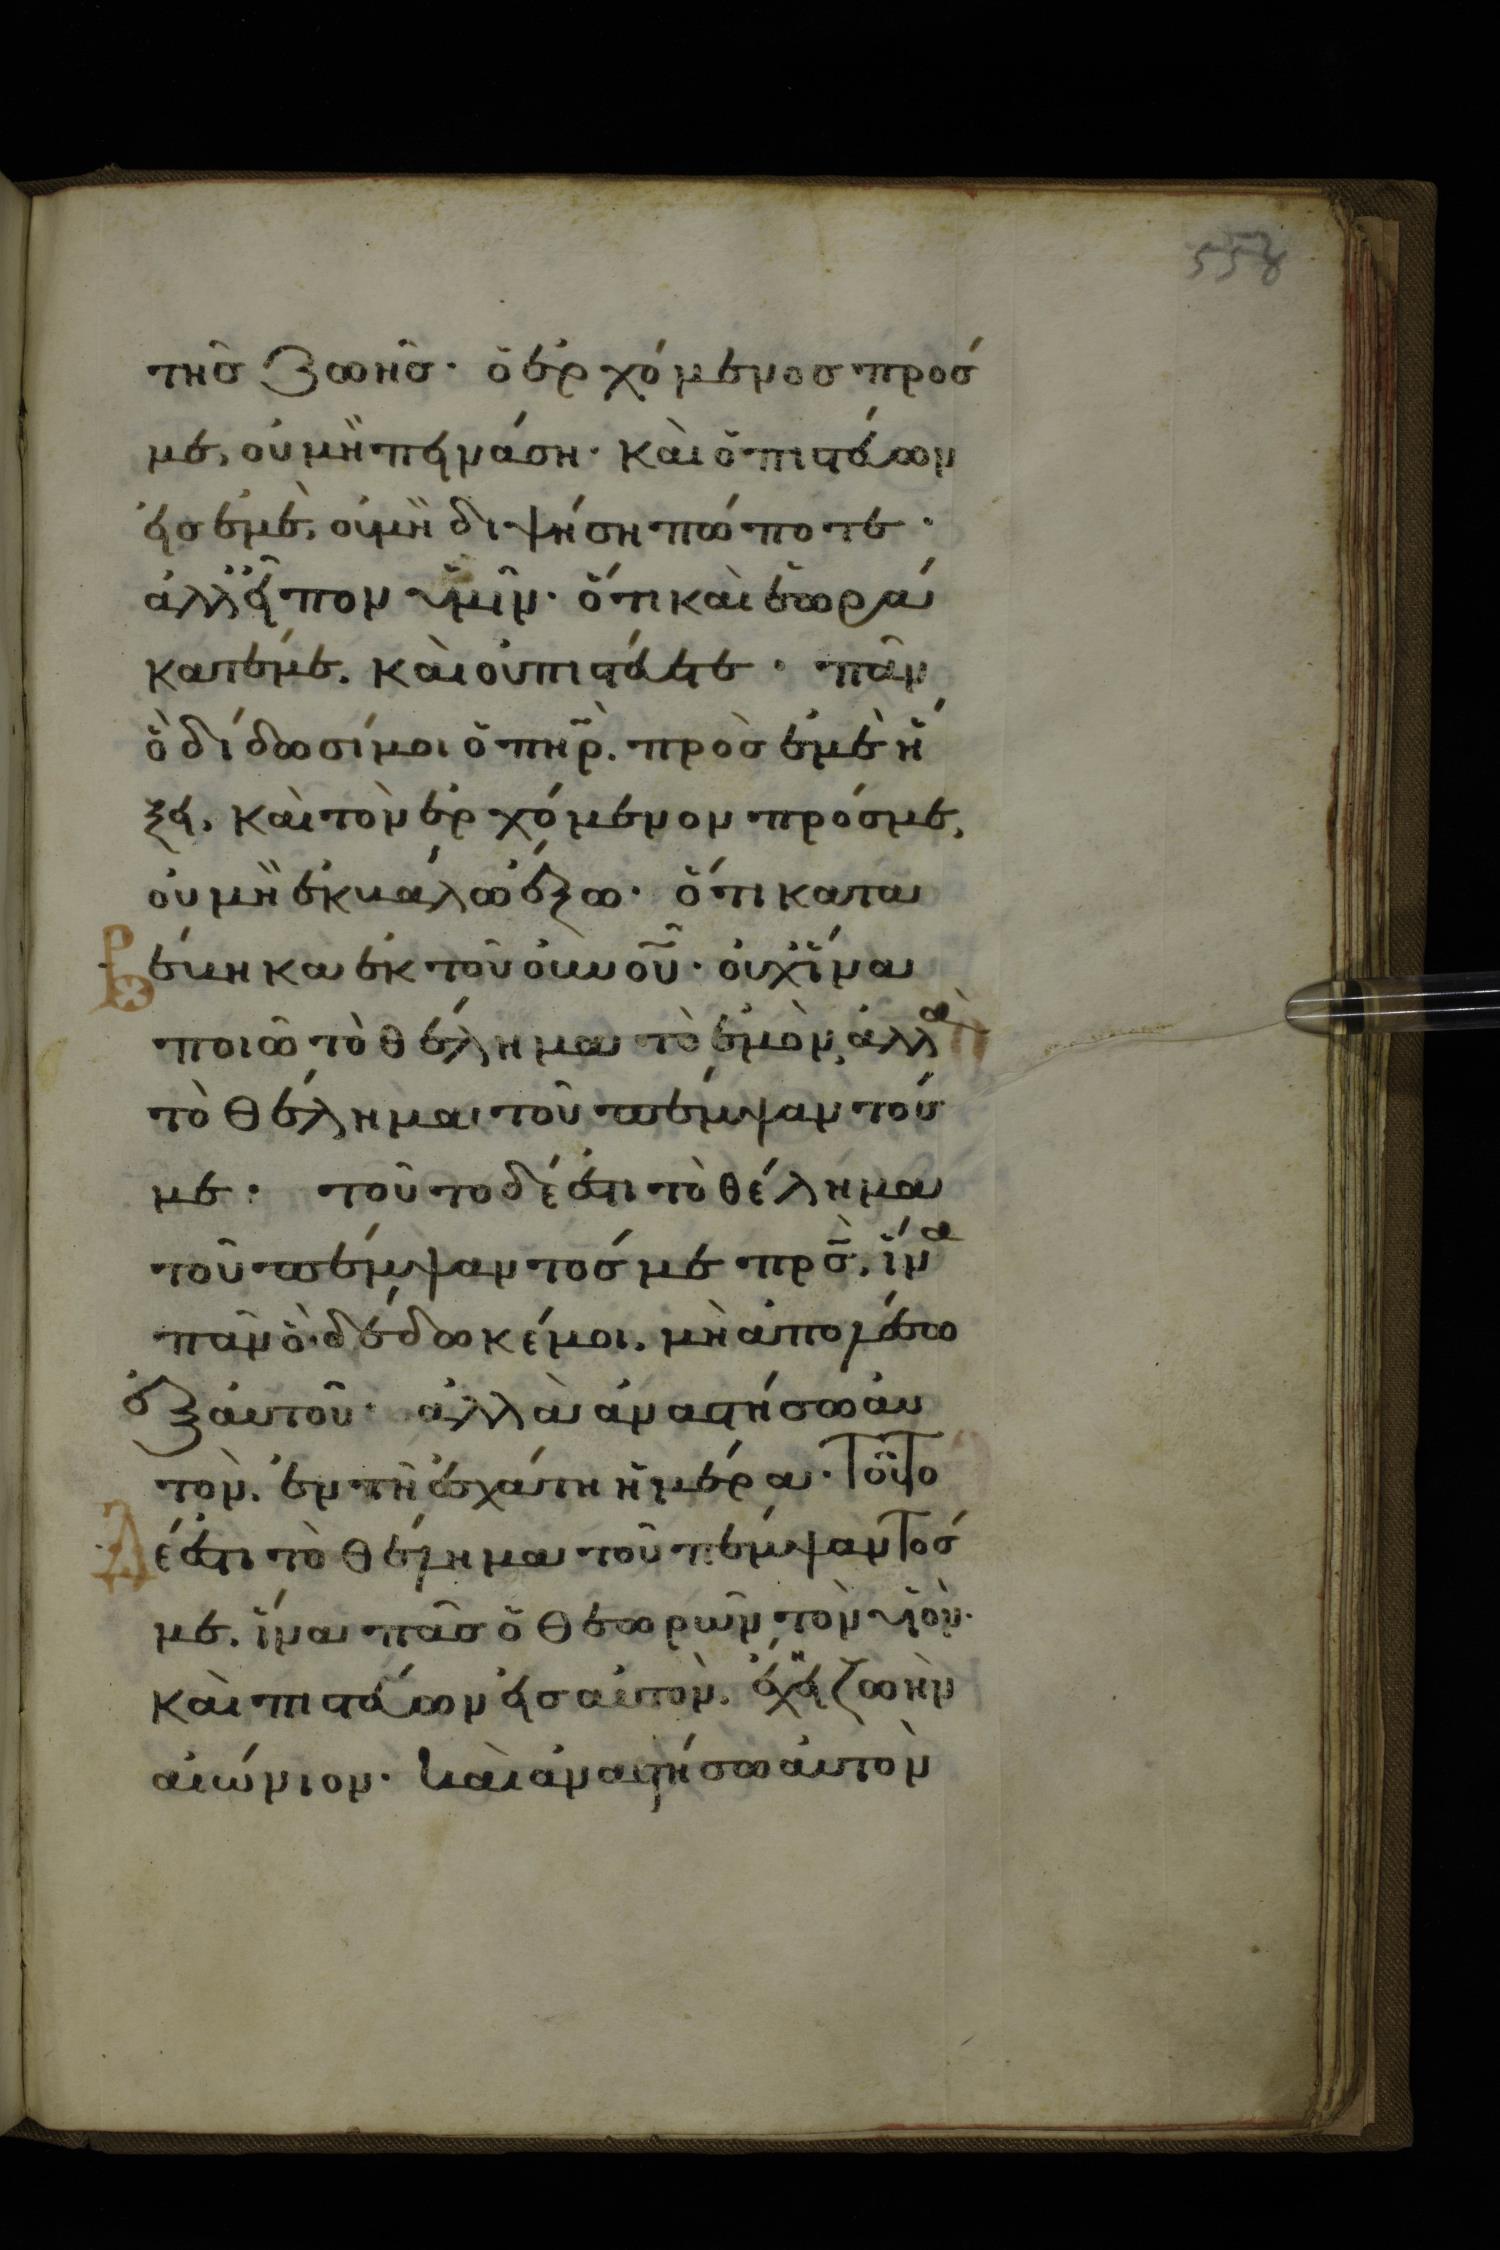 558
τῆσ ζωῆσ· ὁ ἐρχόμενοσ πρόσ
με, οὐ μὴ πεινάση· καὶ ὁ πιστεύων
εἰσ ἐμὲ, οὐ μὴ διψήση πώποτε·
ἀλλ εἶπον ὑμῖν· ὅτι καὶ ἑωρά
κατέ με. καὶ οὐ πιστεύετε· πᾶν
ὃ δίδωσί μοι ὁ πηρ̄. πρὸσ ἐμὲ ἥ
ξει. καὶ τὸν ἐρχόμενον πρόσ με,
οὐ μὴ ἐκβάλω ἔξω· ὅτι κατα
βέβηκα ἐκ τοῦ οὐνοῦ· οὐχ ἵνα
ποιῶ τὸ θέλημα τὸ ἐμὸν, ἀλλὰ
τὸ θέλημα τοῦ πέμψαντόσ
με· τοῦτο δέ ἐστι τὸ θέλημα
τοῦ πέμψαντόσ με πρσ̄. ἵνα
πᾶν ὃ δέδωκέ μοι. μὴ ἀπολέσω
ἐξ αὐτοῦ· ἀλλὰ ἀναστήσω αὐ
τὸν. ἐν τῆ ἐσχάτη ἡμέρα· Τοῦτο
δέ ἐστι τὸ θέλημα τοῦ πέμψαντόσ
με. ἵνα πᾶσ ὁ θεωρῶν τὸν υἱὸν·
καὶ πιστεύων εἰσ αὐτὸν. ἔχει ζωὴν
αἰώνιον· καὶ ἀναστήσω αὐτὸν